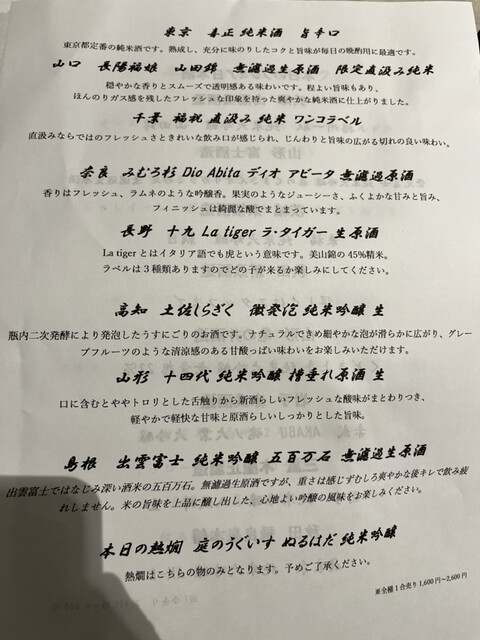 東京　喜正 純米酒　旨辛口
東京都定番の純米酒です。熟成し、充分に味のりしたコクと旨味が毎日の晩酌用に最適です。
山口　長陽福娘　山田錦　無濾過生原酒　限定直汲み純米
穏やかな香りとスムーズで透明感ある味わいです。程よい旨味もあり、
ほんのりガス感を残したフレッシュな印象を持った爽やかな純米酒に仕上がりました。
千葉　福祝 直汲み 純米 ワンコラベル
直汲みならではのフレッシュさときれいな飲み口が感じられ、じんわりと旨味の広がる切れの良い味わい。
奈良　みむろ杉 Dio Abita ディオ アビータ 無濾過原酒
香りはフレッシュ、ラムネのような吟醸香。果実のようなジューシーさ、ふくよかな甘みと旨み、
フィニッシュは綺麗な酸でまとまっています。
長野　十九 La tiger ラ・タイガー 生原酒
La tiger とはイタリア語でも虎という意味です。美山錦の 45%精米。
ラベルは３種類ありますのでどの子が来るか楽しみにしてください。
高知　土佐しらぎく　微発泡 純米吟醸 生
瓶内二次発酵により発泡したうすにごりのお酒です。ナチュラルできめ細やかな泡が滑らかに広がり、グレー
プフルーツのような清涼感のある甘酸っぱい味わいをお楽しみいただけます。
山形　十四代 純米吟醸 槽垂れ原酒 生
口に含むとややトロリとした舌触りから新酒らしいフレッシュな酸味がまとわりつき、
軽やかで軽快な甘味と原酒らしいしっかりとした旨味。
島根　出雲富士 純米吟醸 五百万石 無濾過生原酒
出雲富士ではなじみ深い酒米の五百万石。無濾過生原酒ですが、重さは感じずむしろ爽やかな後キレで飲み疲
れしません。米の旨味を上品に醸し出した、心地よい吟醸の風味をお楽しみください。
本日の熱燗　庭のうぐいす ぬるはだ 純米吟醸
熱燗はこちらの物のみとなります。予めご了承ください。
※全種１合売り 1,600 円～2,600 円